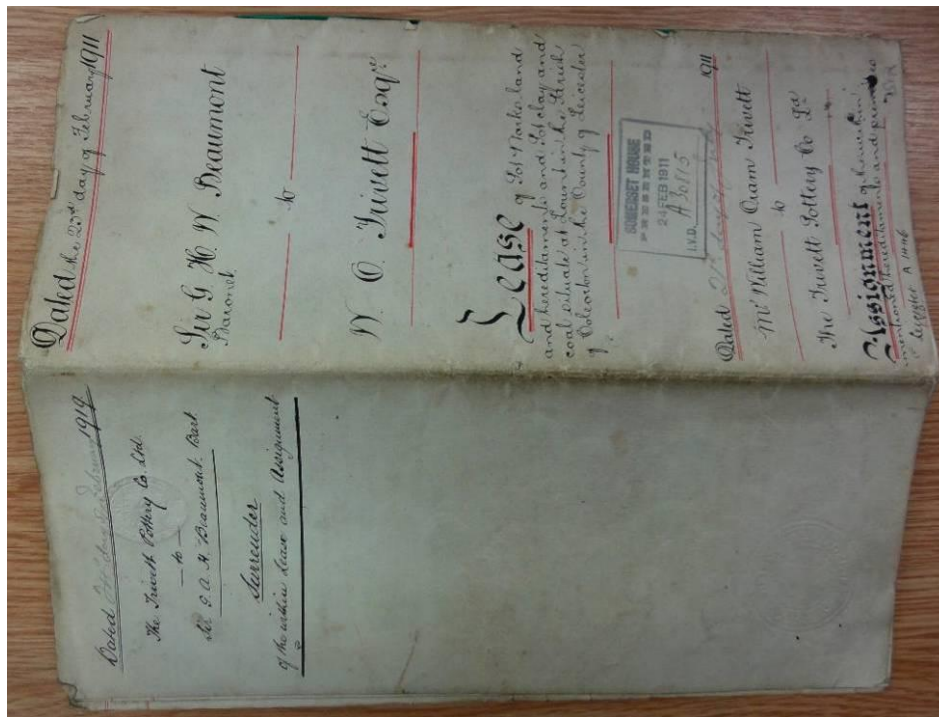 Dated the 23rd day of February 1911
Sir G. H. W. Beaumont
Baronet
to
W. O. Trivett Esqre
Lease of Pot Works land
and hereditaments and Pot clay and
coal situate at Lount in the Parish
of Coleorton in the County of Leicester
SOMERSET HOUSE
PRESENTED
24 FEB 1911
A 3015
I.V.D.
Dated 27th day of 1911
Mr William Oram Trivett
to
The Trivett Pottery Co Ld
Assignment of the within
mentioned hereditaments and premises
A 1446
Dated February 1919
The Trivett Pottery Co. Ltd.
to
Sir G. A. H. Beaumont. Bart
Surrender
of the within Lease and Assignment